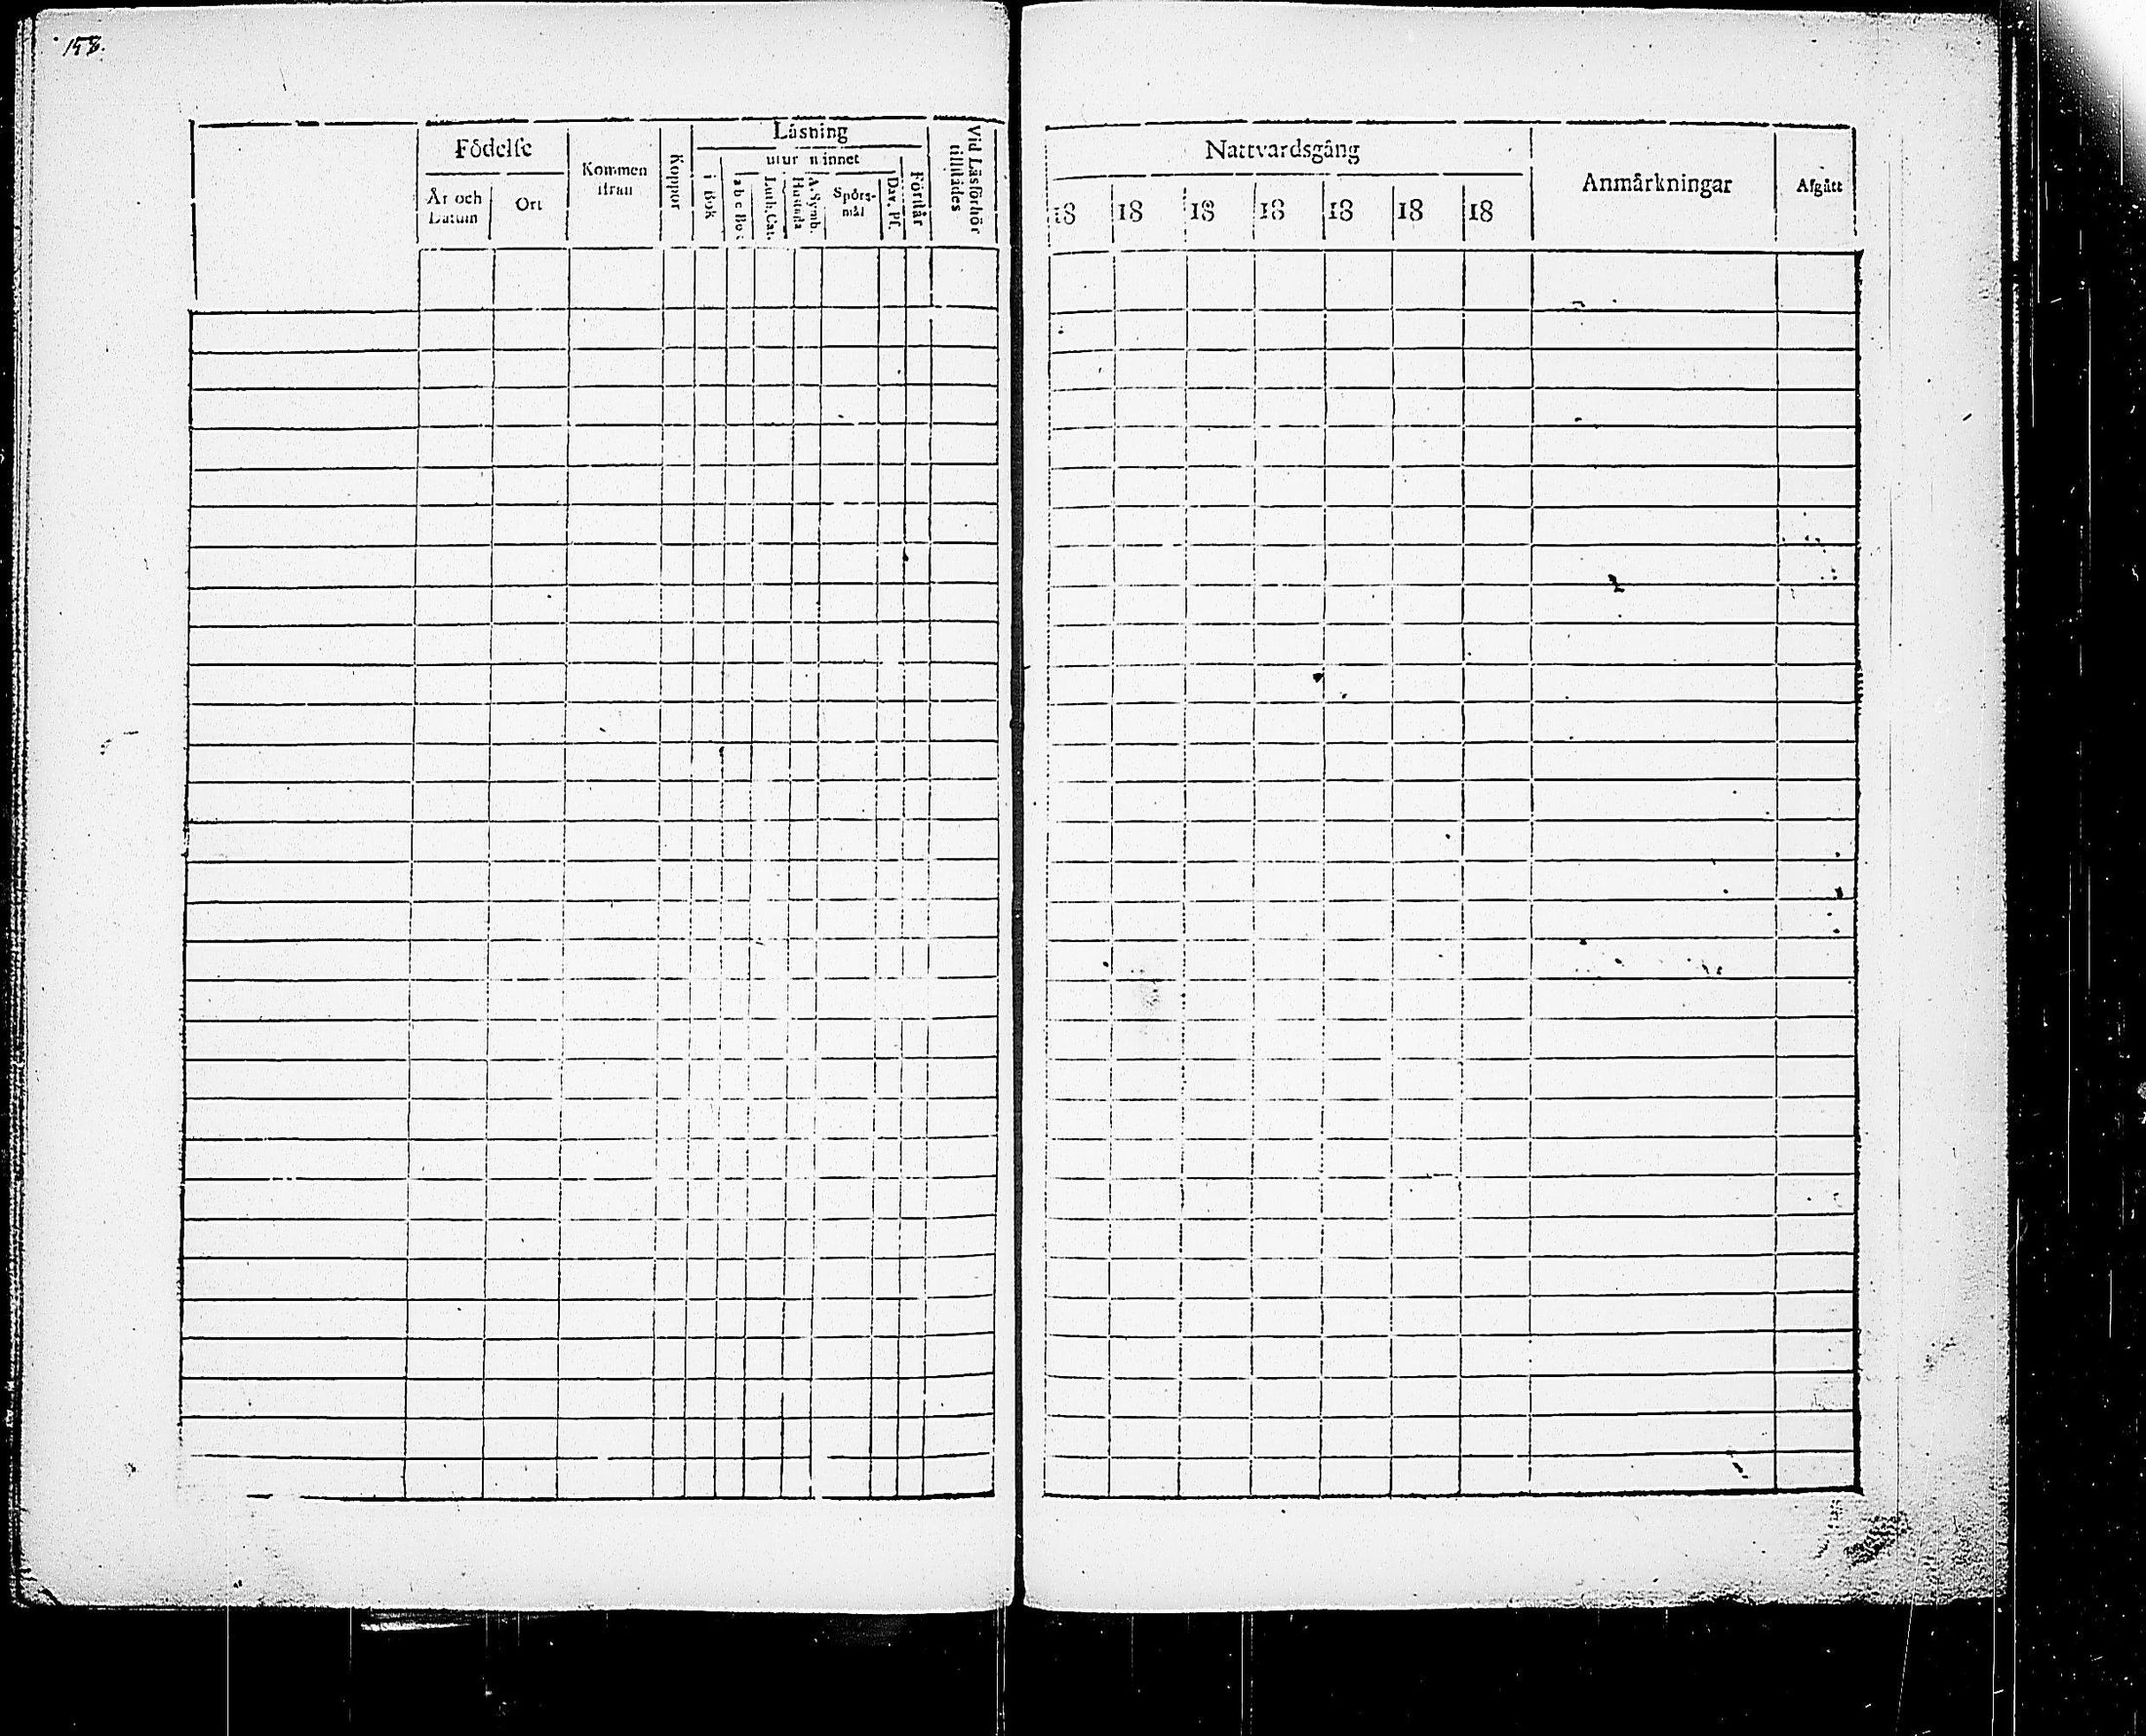 158.
Födelse
År och Datum
Ort
Kommen ifrån
Koppor
Läsning
utur minnet
i Bok
a b c Bok
Luth. Cat.
Hustafla
A. Symb.
Spörs-mål
Dav. Ps.
Förstår
Vid Läsförhör tillstädes
Nattvardsgång
18 18 18 18 18 18 18
Anmärkningar
Afgått